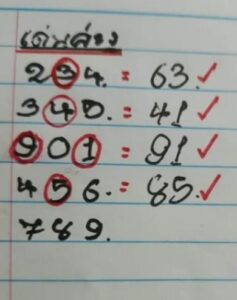 เด่นล่าง
234. = 63. ✓
340. = 41 ✓
901 = 91 ✓
456. = 85. ✓
789.